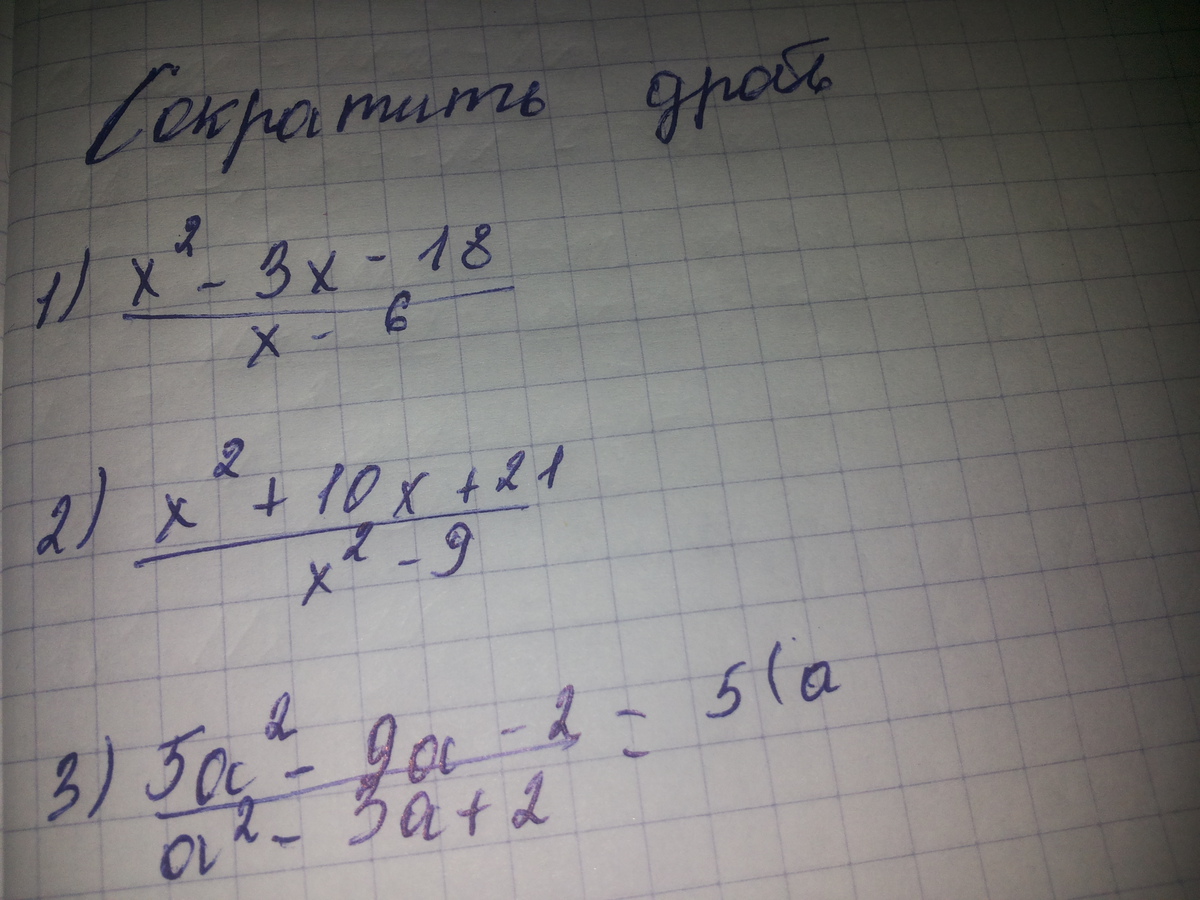 Сократить дробь
1) x² - 3x - 18
x - 6
2) x² + 10x + 21
x² - 9
3) 5a² - 9a - 2 = 5(a
a² - 3a + 2